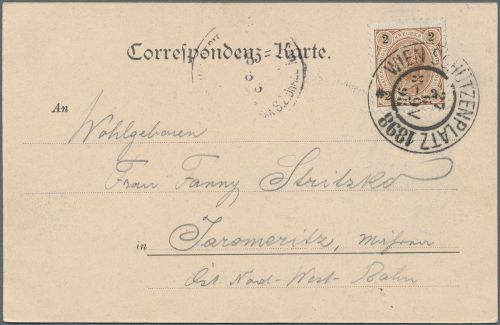 Correspondenz-Karte.
2 2
WIEN SCHÜTZENPLATZ 1898
An
Wohlgeboren
Frau Fanny Stritzko
in Jaromeritz, Mähren
Öst. Nord-West-Bahn